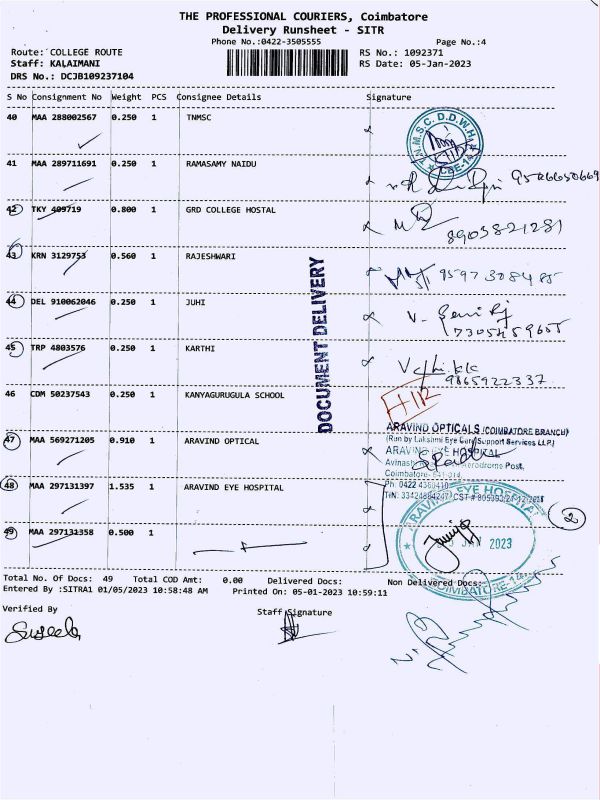 THE PROFESSIONAL COURIERS, Coimbatore
Delivery Runsheet - SITR
Phone No.:0422-3505555 Page No.:4
Route: COLLEGE ROUTE RS No.: 1092371
Staff: KALAIMANI RS Date: 05-Jan-2023
DRS No.: DCJB109237104
S No Consignment No Weight PCS Consignee Details Signature
40 MAA 288002567 0.250 1 TNMSC
41 MAA 289711691 0.250 1 RAMASAMY NAIDU
42 TKY 409719 0.800 1 GRD COLLEGE HOSTAL
8903821281
43 KRN 3129753 0.560 1 RAJESHWARI
9597308485
44 DEL 910062046 0.250 1 JUHI
45 TRP 4803576 0.250 1 KARTHI
9865922337
46 CDM 50237543 0.250 1 KANYAGURUGULA SCHOOL
DOCUMENT DELIVERY
47 MAA 569271205 0.910 1 ARAVIND OPTICAL
ARAVIND OPTICALS (COIMBATORE BRANCH)
(Run by Lakshmi Eye Care Support Services LLP)
ARAVIND EYE HOSPITAL
48 MAA 297131397 1.535 1 ARAVIND EYE HOSPITAL
2
49 MAA 297131358 0.500 1
JAN 2023
Total No. Of Docs: 49 Total COD Amt: 0.00 Delivered Docs: Non Delivered Docs:
Entered By :SITRA1 01/05/2023 10:58:48 AM Printed On: 05-01-2023 10:59:11
Verified By Staff Signature
Suseela